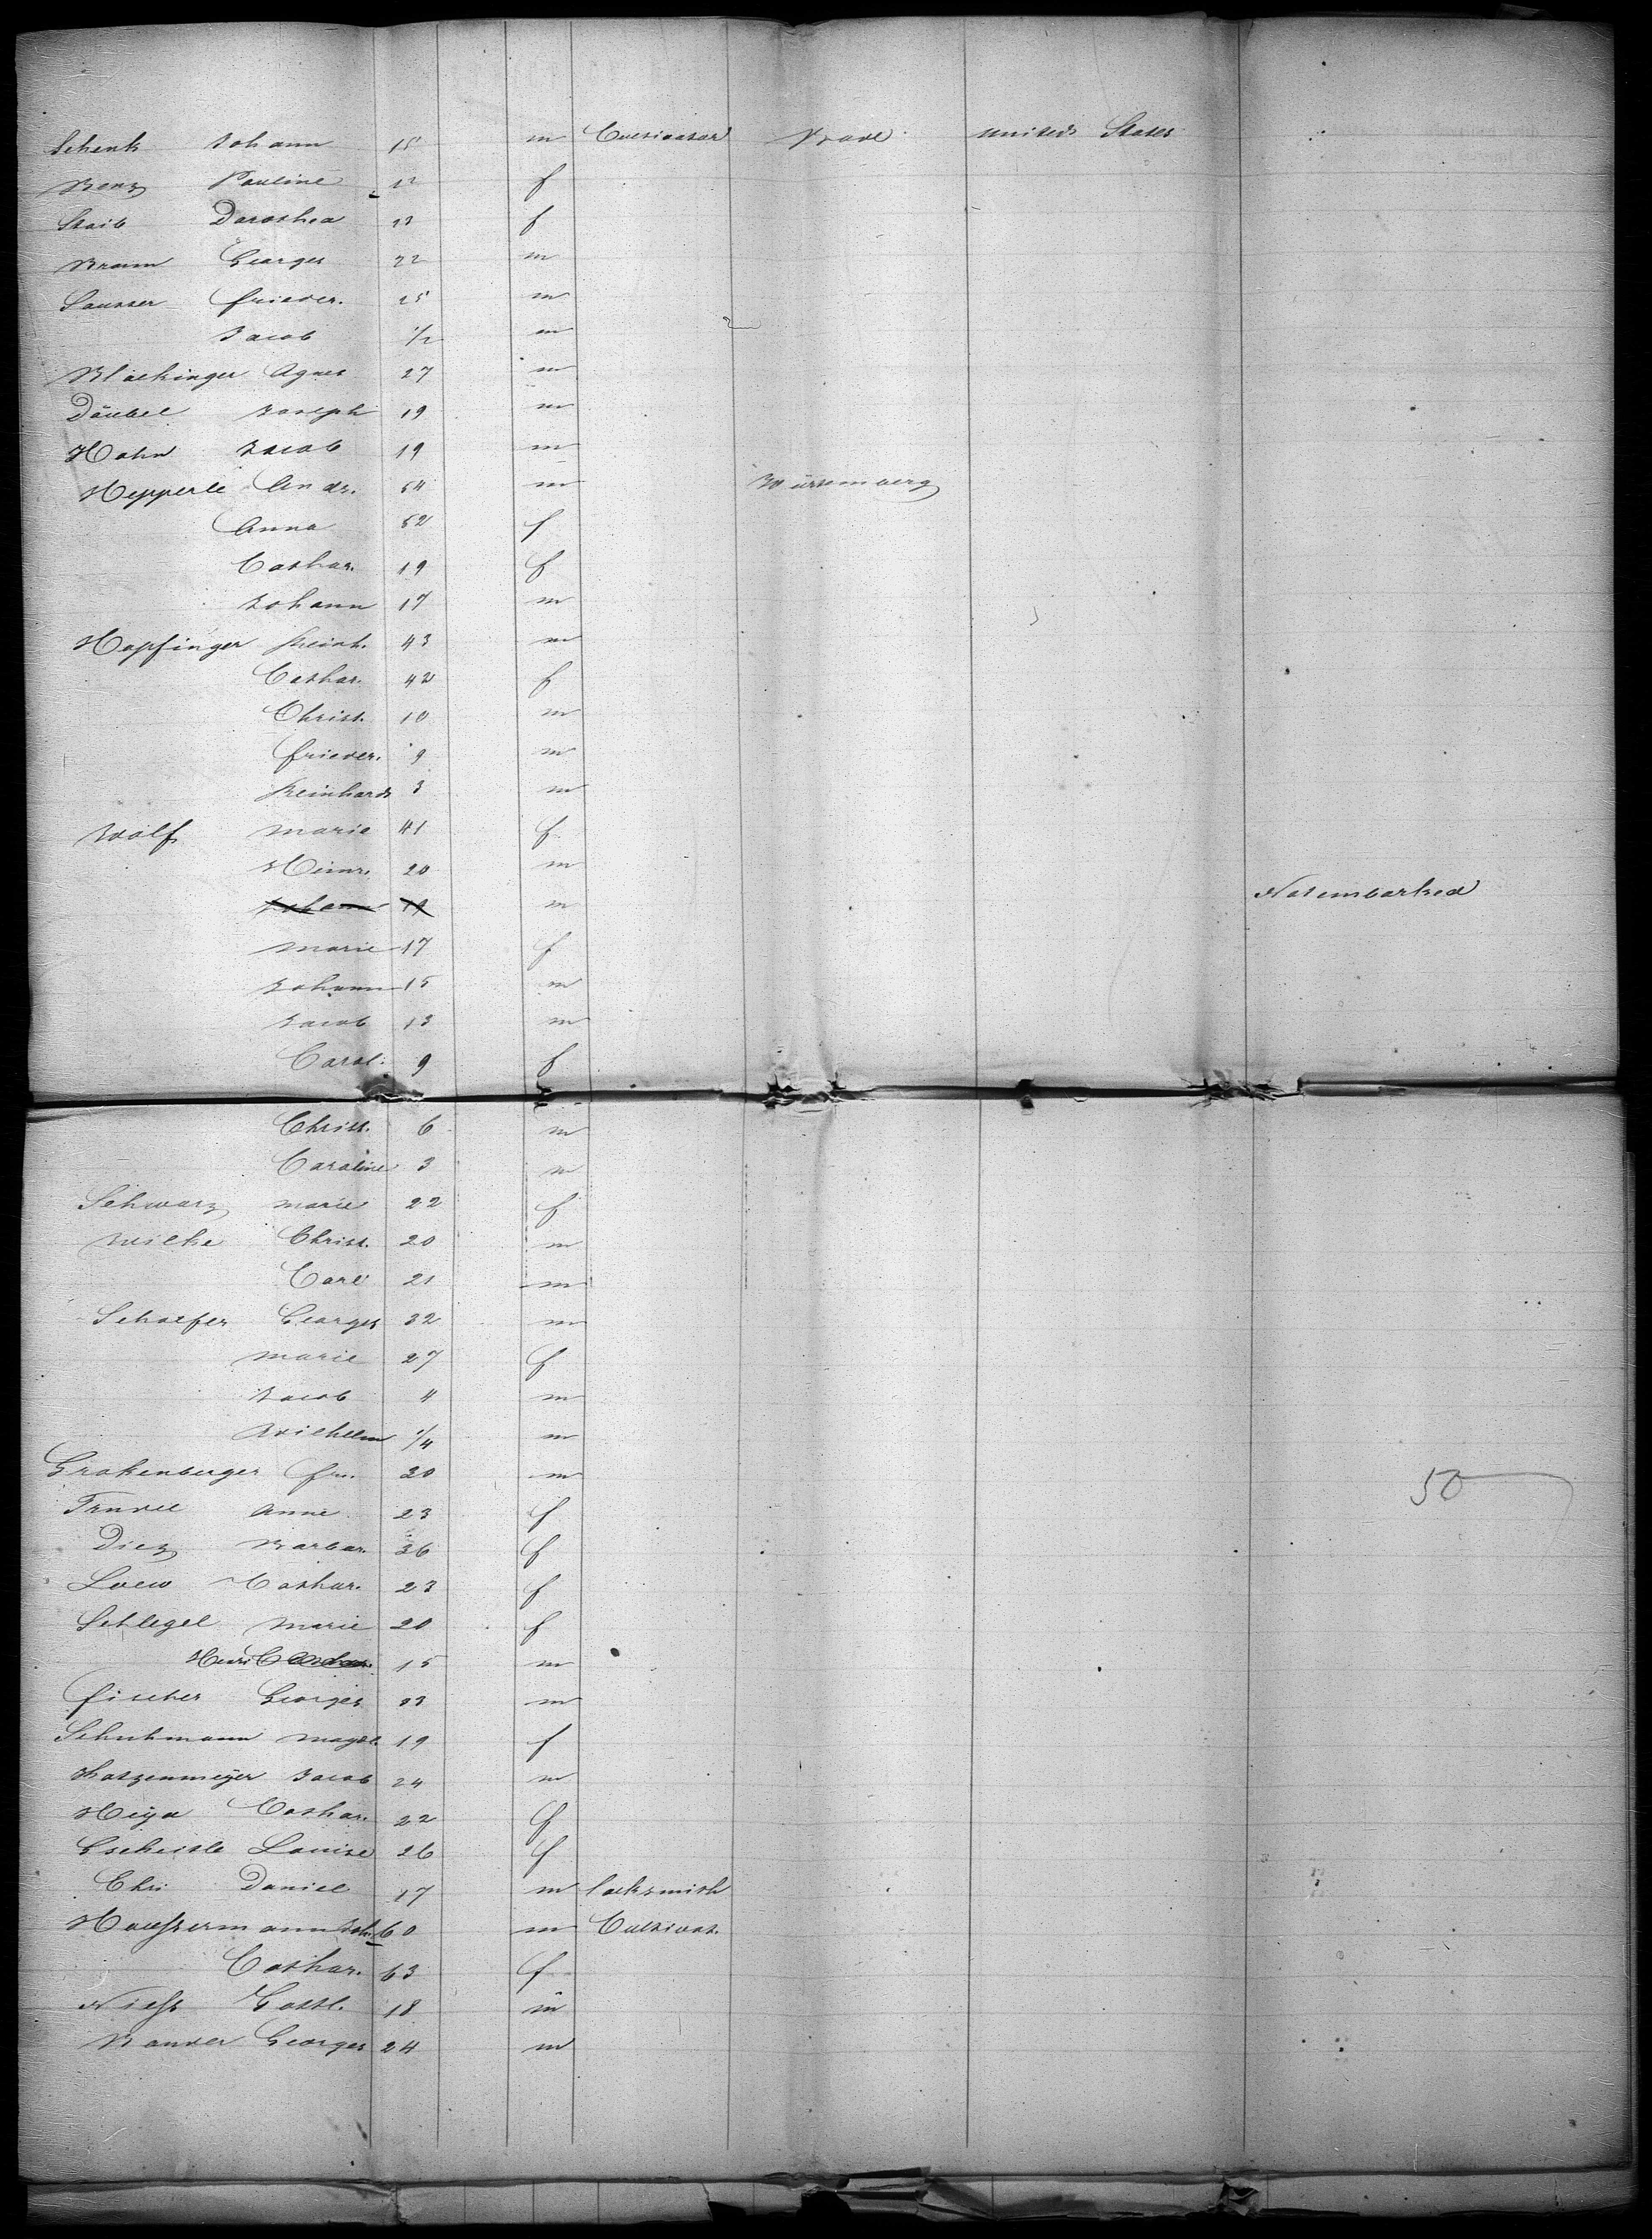 Schenk Johann 15 m Cultivator united States
Benz Pauline 12 f
Staib Dorothea 23 f
Braun Georges 22 m
Sausser frieder. 25 m
Jacob 1/2 m
Blockinger Agnes 27 m
Däubel Joseph 19 m
Hahn Jacob 19 m
Hepperle Andr. 54 m Würtemberg
Anna 52 f
Cathar. 19 f
Johann 17 m
Hopfinger Reinh. 43 m
Cathar. 42 f
Christ. 10 m
frieder. 9 m
Reinhard 3 m
Wolf marie 41 f
Heinr. 20 m
Johann 19 m Not embarked
marie 17 f
Johann 15 m
Jacob 13 m
Carol. 9 f
Christ. 6 m
Caroline 3 m
Schwarz marie 22 f
Wilke Christ. 20 m
Carl 21 m
Schaefer Georges 32 m
marie 27 f
Jacob 4 m
Wilhelm 1/4 m
Grokenberger fr. 30 m 50
Anne 23 f
Diez Barbar. 36 f
Loew Cathar. 23 f
Schlegel Marie 20 f
Henri 15 m
fischer Georges 33 m
Schuhmann magd. 19 f
Katzenmeÿer Jacob 24 m
Heya Cathar. 22 f
Gscheidle Louise 26 f
Ehri Daniel 17 m locksmith
Haeussermann Joh. 60 m Cultivat.
Cathar. 63 f
Niess Gottl. 18 m
Bauder Georges 24 m